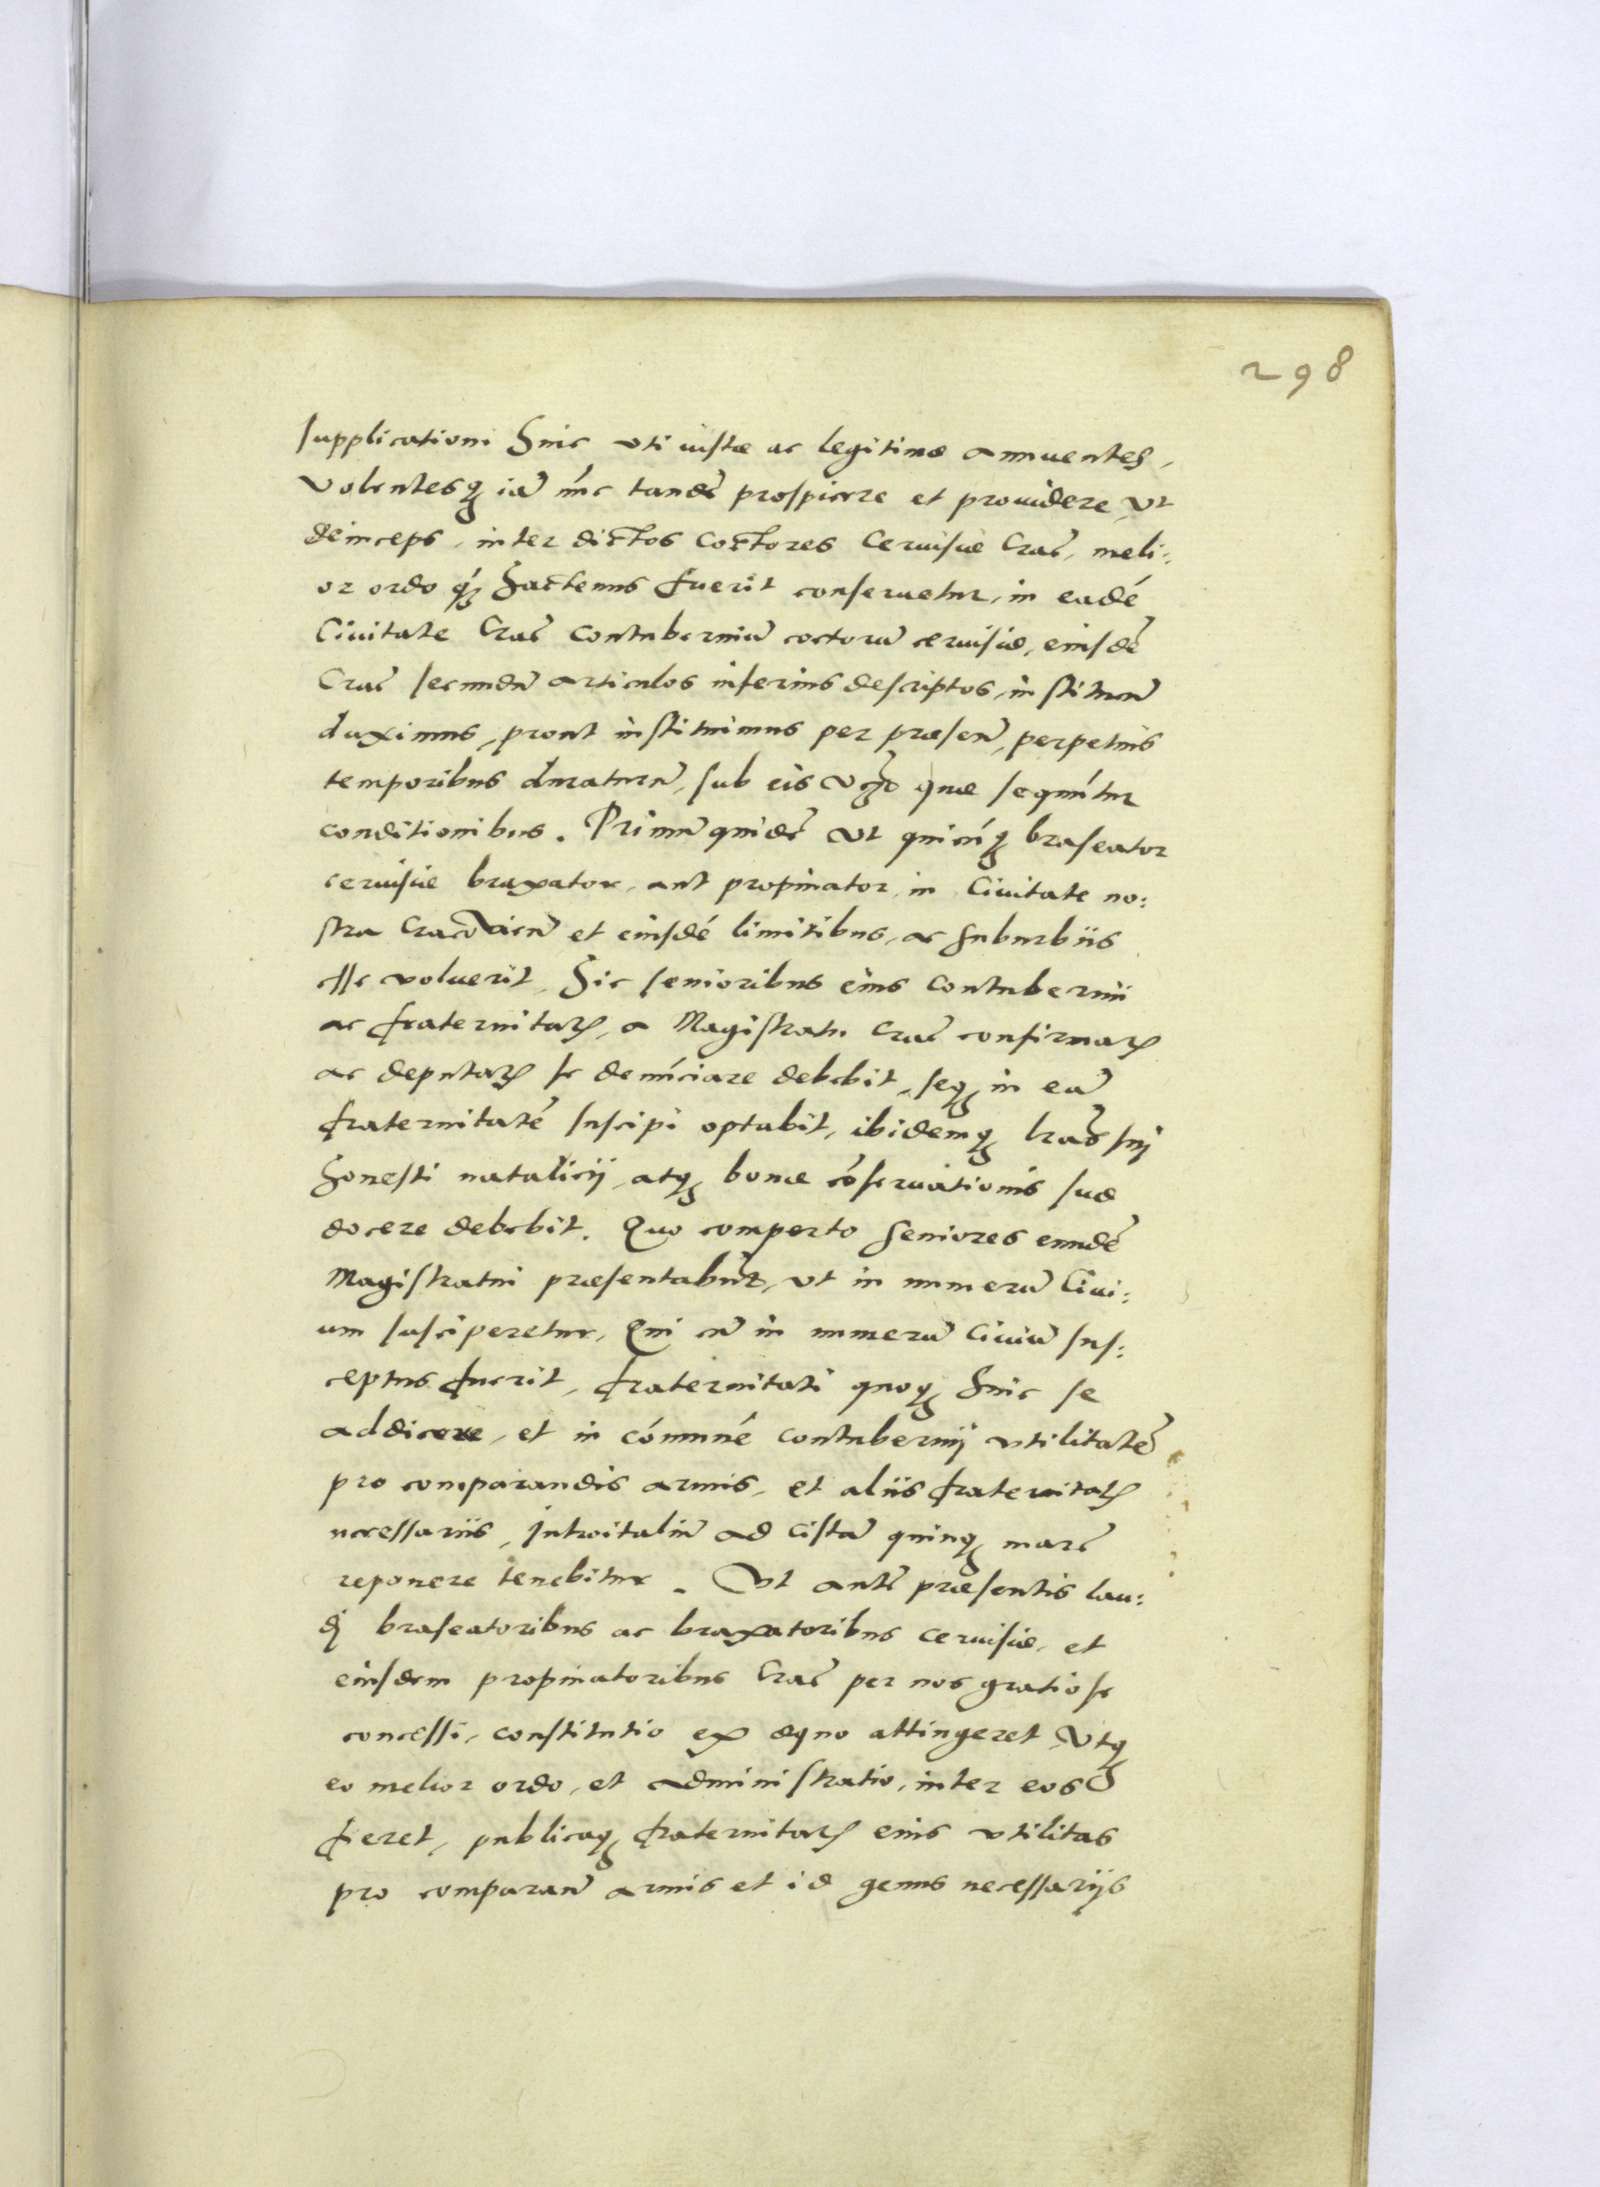 298
supplicationi huic vti iustæ ac legitimæ annuentes,
Volentesq₃ iã nũc tandẽ prospicere et prouidere, vt
deinceps, inter dictos coctores Ceruisiæ Crac̃, meli:
or ordo q̃ hactenus fuerit conseruetur, in eadẽ
Ciuitate Crac̃ contuberniũ coctorũ ceruisiæ, eiusdẽ
Crac̃ secundũ articulos inferius descriptos, instituen̄
duximus, prout instituimus per præsen̄, perpetuis
temporibus duraturũ, sub eis quæ sequũtur
conditionibus. Primũ quidẽ vt quicũq₃ braseator
ceruisiæ braxator, aut propinator, in Ciuitate no:
stra Cracouien̄ et eiusdẽ limitibus, ac suburbiis
esse voluerit, hic senioribus eius contubernii
ac fraternitatꝭ, a Magistratu Crac̃ confirmatꝭ
ac deputatꝭ se denũciare debebit, seq₃ in eã
fraternitatẽ suscipi optabit, ibidemq₃ l̃ras sui
honesti natalicij, atq₃ bonæ cõseruationis suæ
docere debebit. Quo comperto seniores eundẽ
Magistratui præsentabũt, vt in numerũ Ciui:
um susciperetur, Qui cũ in numerũ Ciuiũ sus:
ceptus fuerit, fraternitati quoq₃ huic se
addicere, et in cõmunẽ contubernij vtilitatẽ
pro comparandis armis, et aliis fraternitatꝭ
necessariis, introitaliũ ad cistã quinq₃ marc̃
reponere tenebitur. Vt autẽ præsentis lau:
dj braseatoribus ac braxatoribus ceruisiæ, et
eiusdem propinatoribus Crac̃ per nos gratiose
concessi, constitutio ex æquo attingeret, Vtq₃
eo melior ordo, et administratio, inter eos
fieret, publicaq₃ fraternitatꝭ eius vtilitas
pro comparan̄ armis et id genus necessarijs